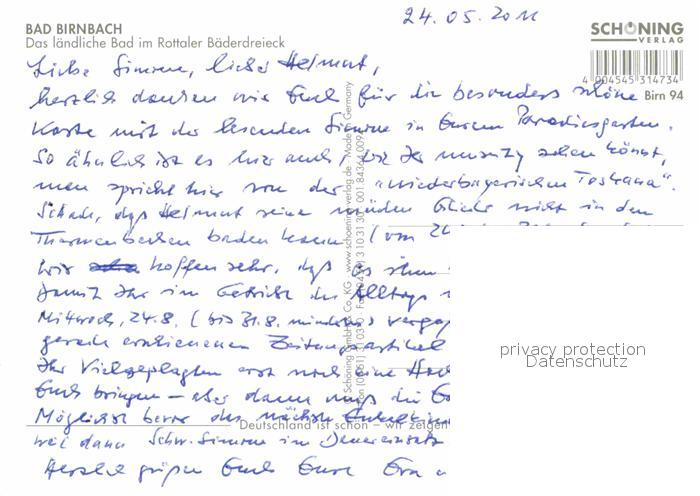 24.05.2011
BAD BIRNBACH
Das ländliche Bad im Rottaler Bäderdreieck
SCHÖNING
VERLAG
4 004545 314734
Birn 94
Liebe Simone, lieber Helmut,
herzlich danken wir Euch für die besonders schöne
Karte mit der lesenden Simone in Eurem Paradiesgarten.
So ähnlich ist es hier auch, wie Ihr sehen könnt,
man spricht hier von der "niederbayerischen Toskana".
Schade, daß Helmut seine müden Glieder nicht in den
Thermenbecken baden kann (vom
Wir hoffen sehr, daß es ihm
damit Ihr im Getriebe des Alltags
Mittwoch, 24.8. (bis 31.8. mindestens)
gerade erschienenen Zeitungsartikel
Ihr Vielgeplagten erst noch eine
Euch bringen – aber dann muß die
Möglichst bevor das nächste Enkelkind
weil dann Schw. Simone im Dauereinsatz
Herzlich grüßen Euch Eure
Schöning GmbH & Co. KG www.schoening-verlag.de Made in Germany
Deutschland ist schön – wir zeigen
privacy protection
Datenschutz